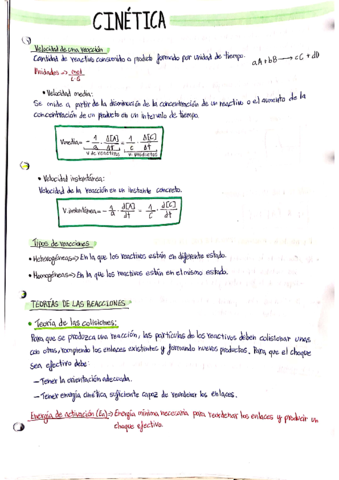 CINÉTICA
Velocidad de una reacción
Cantidad de reactivo consumido o producto formado por unidad de tiempo.
aA + bB → cC + dD
Unidades => mol / L·s
• Velocidad media:
Se mide a partir de la disminución de la concentración de un reactivo o el aumento de la
concentración de un producto en un intervalo de tiempo.
Vmedia = - 1/a · Δ[A]/Δt = 1/c · Δ[C]/Δt
v. de reactivos v. productos
• Velocidad instantánea:
Velocidad de la reacción en un instante concreto.
V. instantánea = - 1/a · d[A]/dt = 1/c · d[C]/dt
Tipos de reacciones
• Heterogéneas => En la que los reactivos están en diferente estado.
• Homogéneas => En la que los reactivos están en el mismo estado.
TEORÍAS DE LAS REACCIONES
• Teoría de las colisiones:
Para que se produzca una reacción, las partículas de los reactivos deben colisionar unas
con otras, rompiendo los enlaces existentes y formando nuevos productos. Para que el choque
sea efectivo debe:
- Tener la orientación adecuada.
- Tener energía cinética suficiente capaz de reordenar los enlaces.
Energía de activación (Ea) => Energía mínima necesaria para reordenar los enlaces y producir un
choque efectivo.